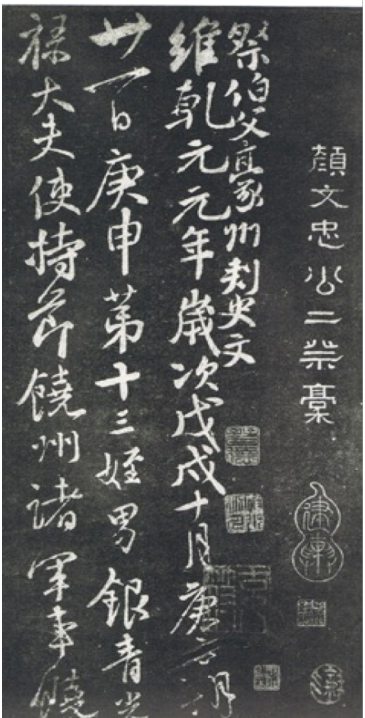 顏文忠公二祭稾
祭伯父豪州刺史文
維乾元元年歲次戊戌十月庚朔
廿一日庚申第十三姪男銀青光
祿大夫使持節饒州諸軍事饒